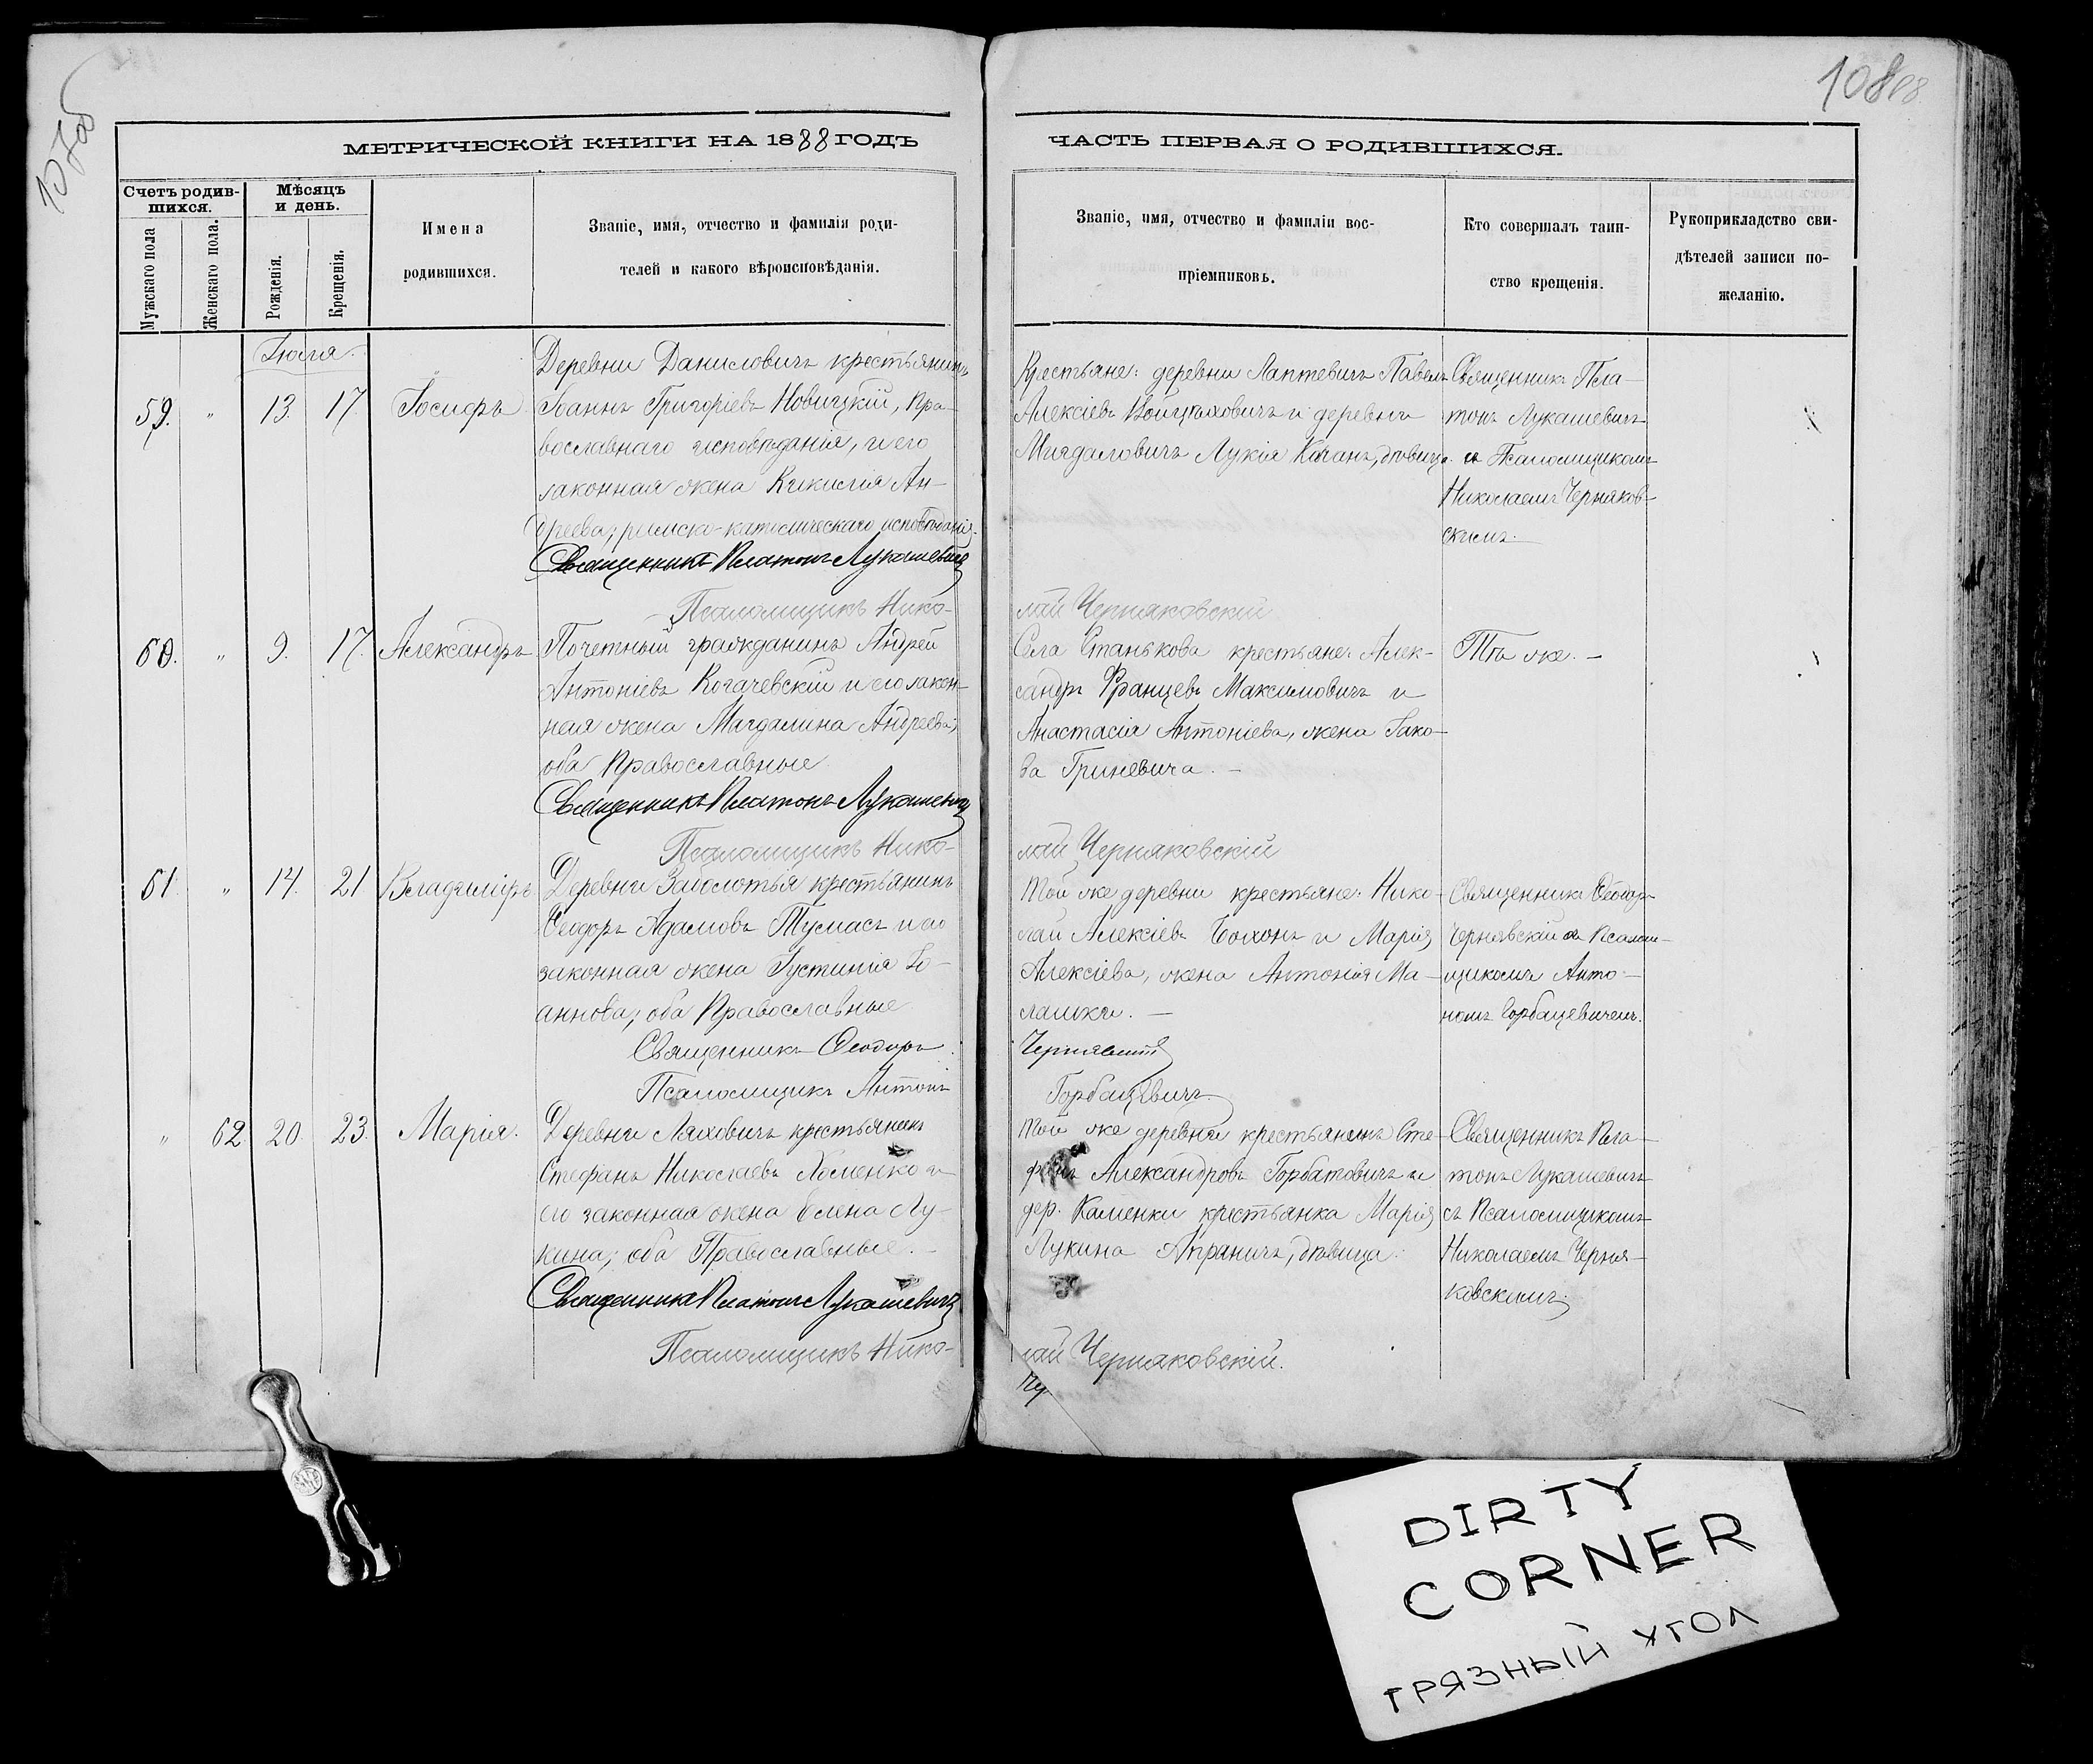 108
МЕТРИЧЕСКОЙ КНИГИ НА 1888 ГОДЪ
ЧАСТЬ ПЕРВАЯ О РОДИВШИХСЯ.
Счетъ родив-
шихся.
Мужскаго пола
Женскаго пола.
Мѣсяцъ
и день.
Рожденія.
Крещенія.
Имена
родившихся.
Званіе, имя, отчество и фамилія роди-
телей и какого вѣроисповѣданія.
Званіе, имя, отчество и фамиліи вос-
пріемниковъ.
Кто совершалъ таин-
ство крещенія.
Рукоприкладство сви-
дѣтелей записи по-
желанію.
Іюля.
59. " 13. 17. Іосифъ
Деревни Даниловичъ крестьянинъ
Іоаннъ Григоріевъ Новицкій, Пра-
вославнаго исповѣданія, и его
законная жена Кикилія Ан-
дреева; римско-католическаго исповѣданія.
Священникъ Платонъ Лукашевичъ
Псаломщикъ Нико-
Крестьяне: деревни Лаптевичъ Павелъ
Алексіевъ Войцъховичъ и деревни
Мигдаловичъ Лукія Каганъ, дѣвица.
лай Черняковскій
Священникъ Пла-
тонъ Лукашевичъ
съ Псаломщикомъ
Николаемъ Черняков-
скимъ.
60. " 9. 17. Александръ
Почетный гражданинъ Андрей
Антоніевъ Рогачевскій и его закон-
ная жена Магдалина Андреева;
оба Православные
Священникъ Платонъ Лукашевичъ
Псаломщикъ Нико-
Села Станькова крестьяне: Алек-
сандръ Францевъ Максимовичъ и
Анастасія Антоніева, жена Іако-
ва Гриневича. -
лай Черняковскій
Тѣ же. -
61. " 14. 21 Владиміръ
Деревни Заболотья крестьянинъ
Ѳеодоръ Адамовъ Тумасъ и его
законная жена Іустинія Іо-
аннова; оба Православные
Священникъ Ѳеодоръ
Псаломщикъ Антонъ
Той же деревни крестьяне: Нико-
лай Алексіевъ Боханъ и Марія
Алексіева, жена Антонія Ма-
лашки. -
Чернявскій
Горбацевичъ.
Священникъ Ѳеодоръ
Чернявскій съ Псалом-
щикомъ Анто-
номъ Горбацевичемъ.
" 62 20. 23. Марія.
Деревни Ляховичъ крестьянинъ
Стефанъ Николаевъ Хоменко и
его законная жена Елена Лу-
кина; оба Православные. -
Священникъ Платонъ Лукашевичъ
Псаломщикъ Нико-
Той же деревни крестьянинъ Сте-
фанъ Александровъ Горбатовичъ и
дер. Каменки крестьянка Марія
Лукина Апраничъ, дѣвица.
лай Черняковскій.
Священникъ Пла-
тонъ Лукашевичъ
съ Псаломщикомъ
Николаемъ Черня-
ковскимъ.
DIRTY
CORNER
ГРЯЗНЫЙ УГОЛ